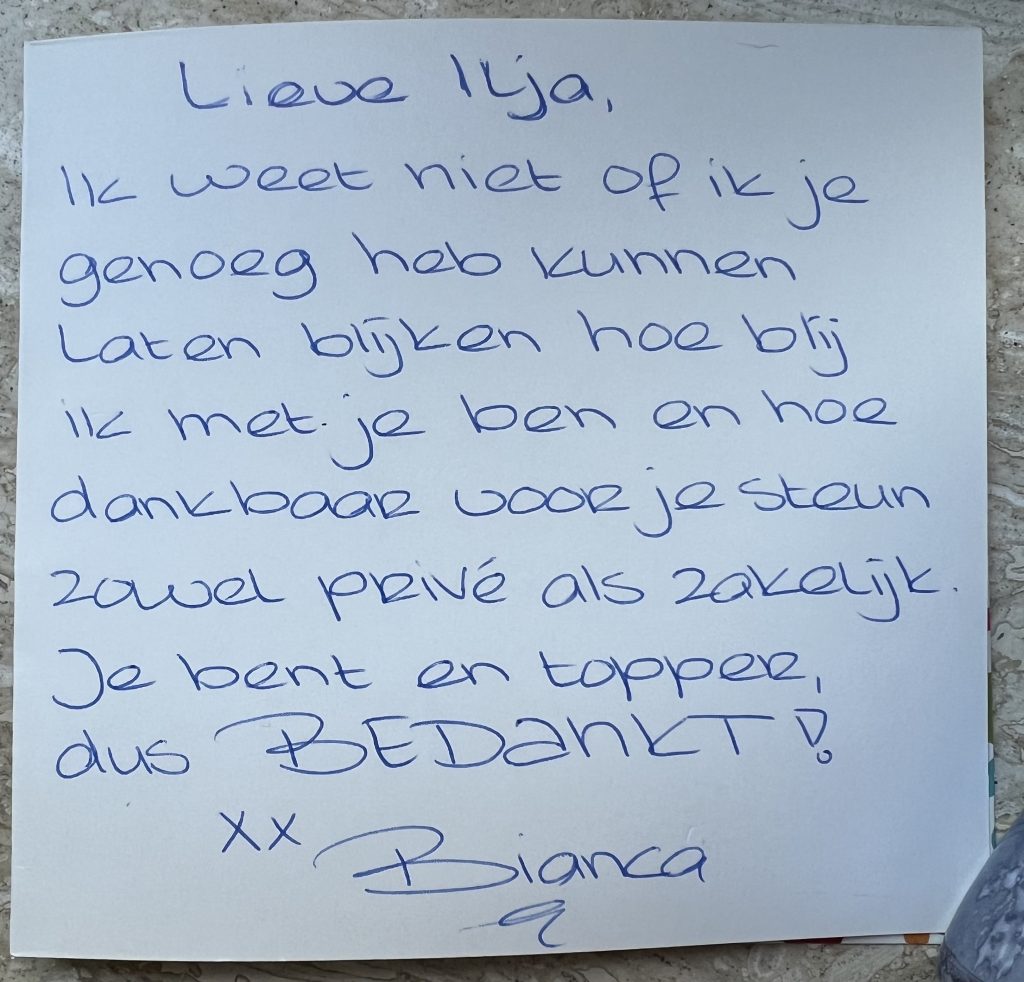 Lieve Ilja,
Ik weet niet of ik je
genoeg heb kunnen
Laten blijken hoe blij
ik met je ben en hoe
dankbaar voor je steun
zowel privé als zakelijk.
Je bent en topper,
dus BEDANKT!
xx
Bianca